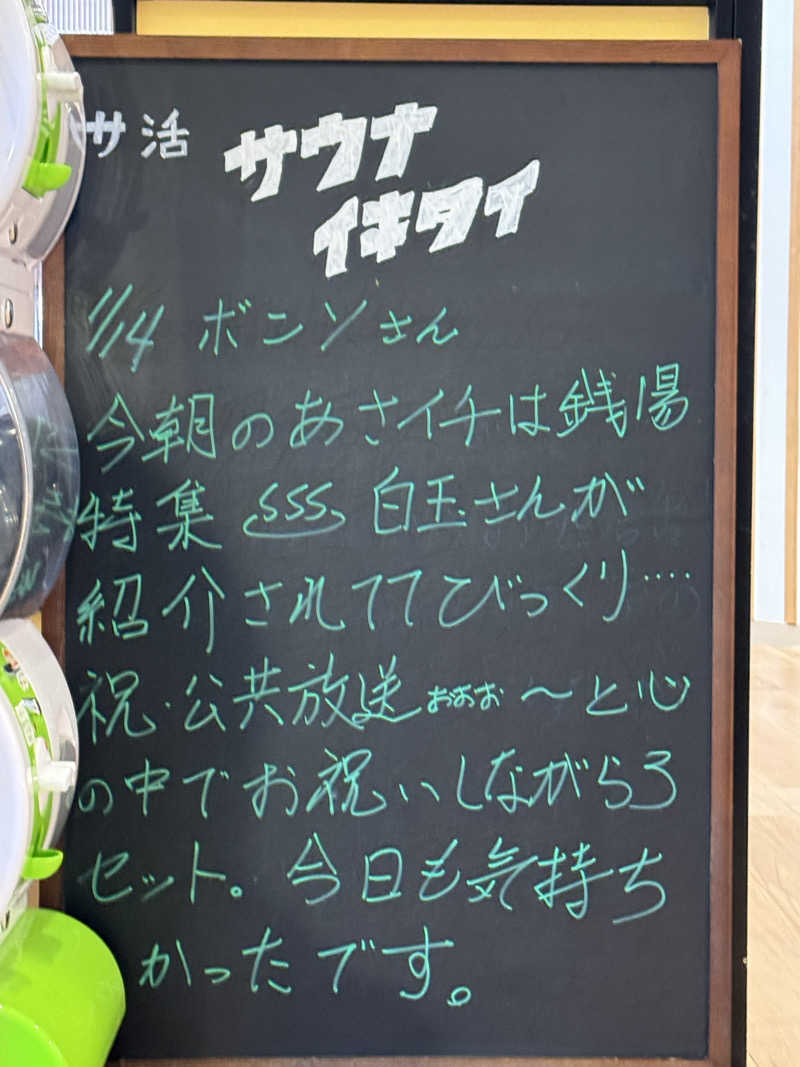 サ活 サウナ
イキタイ
1/14 ボンソさん
今朝のあさイチは銭湯
特集 白玉さんが
紹介されててびっくり‥‥
祝・公共放送ぉぉぉ〜と心
の中でお祝いしながら3
セット。今日も気持ち
かったです。